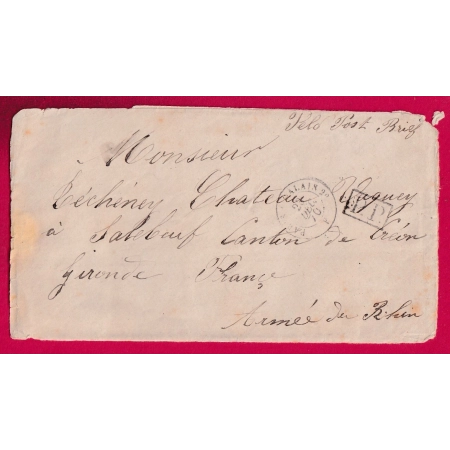 Feld Post Brief
Monsieur
Téchéney Chateau
à Salebœuf Canton de Créon
Gironde France
Armée du Rhin
PD